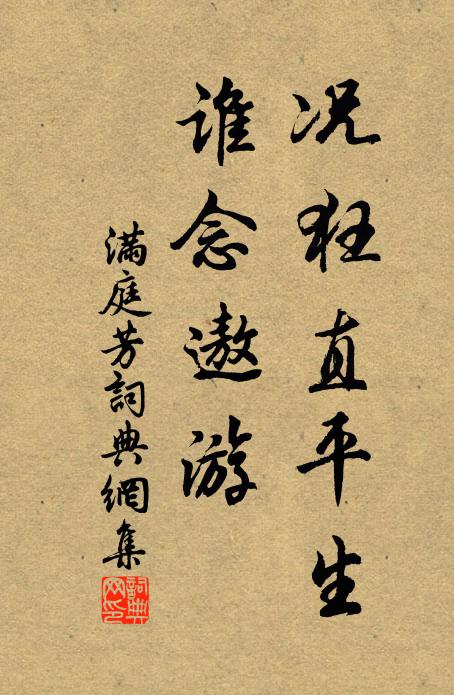 况狂直平生
谁念遨游
满庭芳詞典網集
詞典
网印